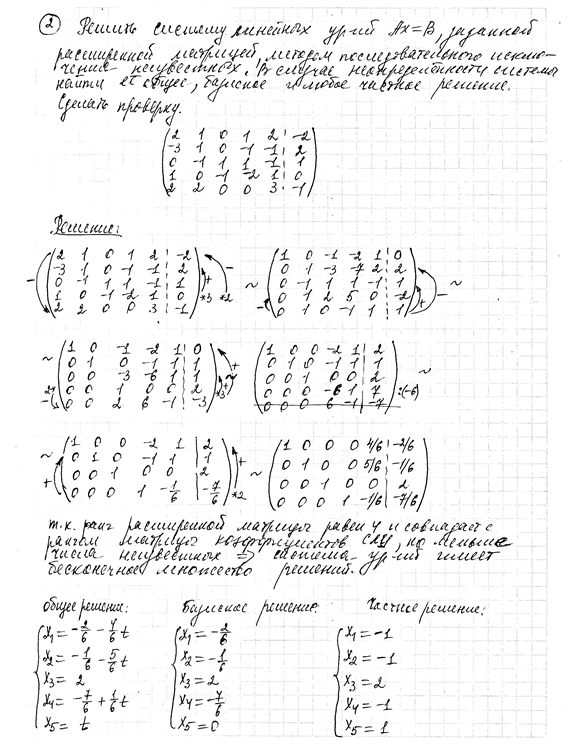 2 Решить систему линейных ур-ий Ax=B, заданной
расширенной матрицей, методом последовательного исклю-
чения неизвестных. В случае неопределённости системы
найти её общее, базисное и любое частное решение.
Сделать проверку.
2 1 0 1 2 | -2
-3 1 0 -1 -1 | 2
0 -1 1 1 -1 | 1
1 0 -1 -2 1 | 0
2 2 0 0 3 | -1
Решение:
2 1 0 1 2 | -2
-3 1 0 -1 -1 | 2
0 -1 1 1 -1 | 1
1 0 -1 -2 1 | 0
2 2 0 0 3 | -1
- + *3 *2 -
~
1 0 -1 -2 1 | 0
0 1 -3 -7 2 | 2
0 -1 1 1 -1 | 1
0 1 2 5 0 | -2
0 1 0 -1 1 | 1
- + - ~
~
1 0 -1 -2 1 | 0
0 1 0 -1 1 | 1
0 0 -3 -6 1 | 1
0 0 1 0 0 | 2
0 0 2 6 -1 | -3
2* - + + *3
1 0 0 -2 1 | 2
0 1 0 -1 1 | 1
0 0 1 0 0 | 2
0 0 0 -6 1 | 7
0 0 0 6 -1 | -7
:(-6) ~
~
1 0 0 -2 1 | 2
0 1 0 -1 1 | 1
0 0 1 0 0 | 2
0 0 0 1 -1/6 | -7/6
+ + *2
~
1 0 0 0 4/6 | -2/6
0 1 0 0 5/6 | -1/6
0 0 1 0 0 | 2
0 0 0 1 -1/6 | -7/6
т.к. ранг расширенной матрицы равен 4 и совпадает с
рангом матрицы коэффициентов СЛУ, но меньше
числа неизвестных ⇒ система ур-ий имеет
бесконечное множество решений.
Общее решение:
x1 = -2/6 - 4/6 t
x2 = -1/6 - 5/6 t
x3 = 2
x4 = -7/6 + 1/6 t
x5 = t
Базисное решение:
x1 = -2/6
x2 = -1/6
x3 = 2
x4 = -7/6
x5 = 0
Частное решение:
x1 = -1
x2 = -1
x3 = 2
x4 = -1
x5 = 1